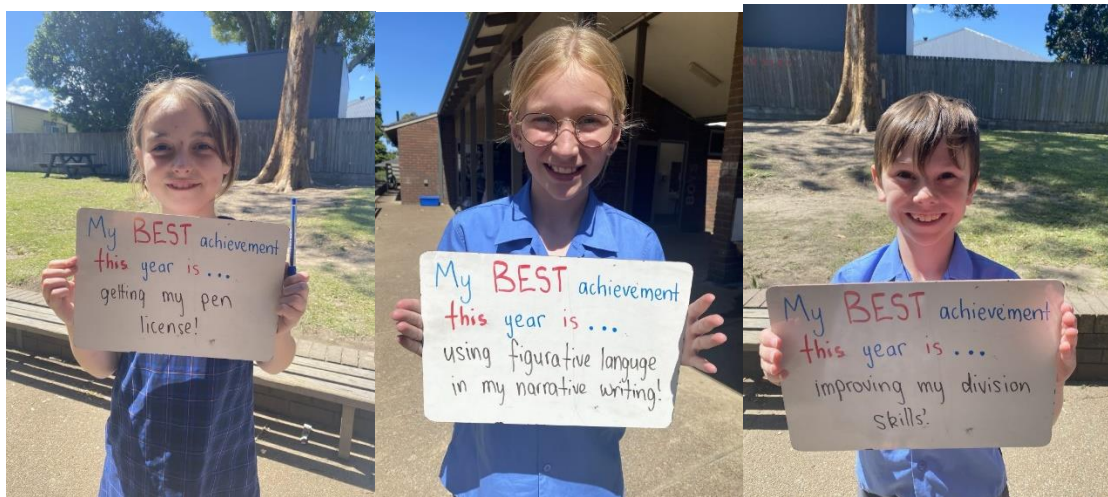 My BEST achievement
this year is ...
getting my pen
license!
My BEST achievement
this year is ...
using figurative languge
in my narrative writing!
My BEST achievement
this year is ...
improving my division
skills!